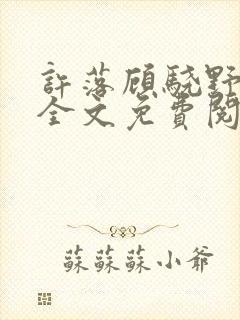 許落顧驍野
全文免費閱
蘇蘇蘇小爺